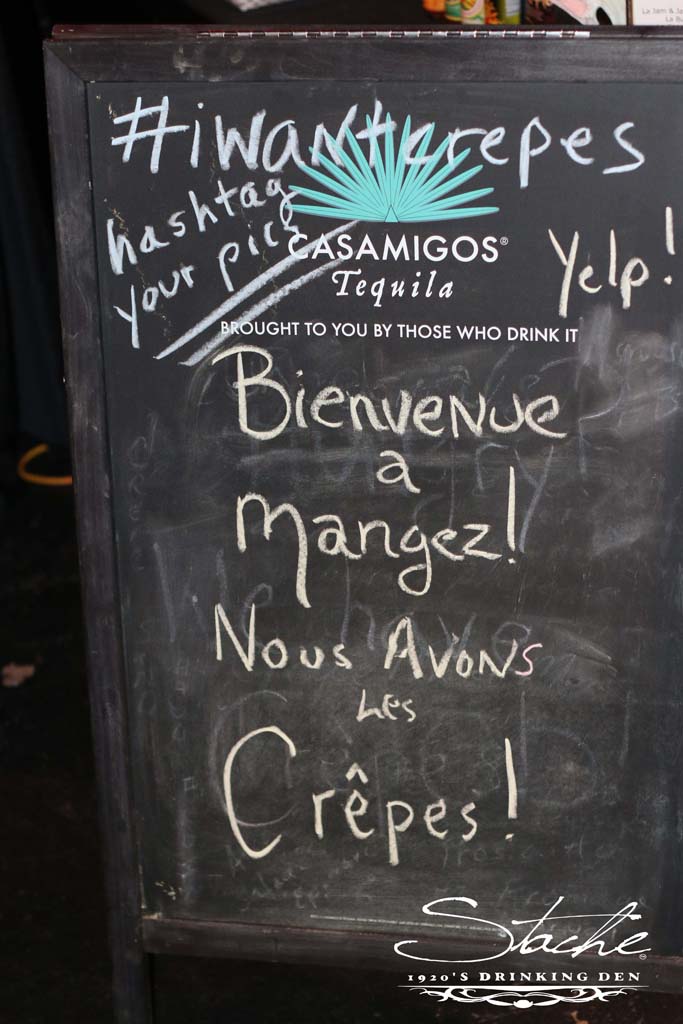 #iwantcrepes
hashtag
your pics
CASAMIGOS®
Tequila
Yelp!
BROUGHT TO YOU BY THOSE WHO DRINK IT
Bienvenue
a
mangez!
Nous Avons
Les
Crêpes!
Stache
1920'S DRINKING DEN